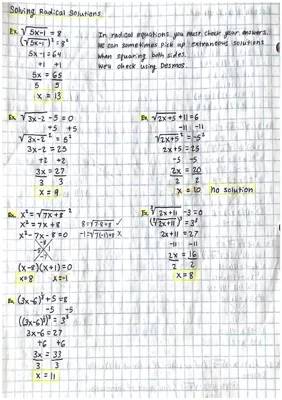 Solving Radical Solutions
Ex. √(5x-1) = 8
(√(5x-1))² = 8²
5x-1 = 64
+1 +1
5x = 65
5 5
x = 13
In radical equations, you must check your answers.
We can sometimes pick up extraneous solutions
when squaring both sides.
We'll check using Desmos.
Ex. √(3x-2) - 5 = 0
+5 +5
√(3x-2)² = 5²
3x-2 = 25
+2 +2
3x = 27
3 3
x = 9
Ex. √(2x+5) + 11 = 6
-11 -11
√(2x+5)² = -5²
2x+5 = 25
-5 -5
2x = 20
2 2
x = 10 no solution
Ex. x² = √(7x+8)²
x² = 7x+8
x² - 7x - 8 = 0
(x-8)(x+1) = 0
x = 8 x = -1
8 = √(7·8+8) ✓
-1 = √(7(-1)+8) x
Ex. ³√(2x+11) - 3 = 0
(³√(2x+11))³ = 3³
2x+11 = 27
-11 -11
2x = 16
2 2
x = 8
Ex. (3x-6)^⅓ + 5 = 8
-5 -5
((3x-6)^⅓)³ = 3³
3x-6 = 27
+6 +6
3x = 33
3 3
x = 11